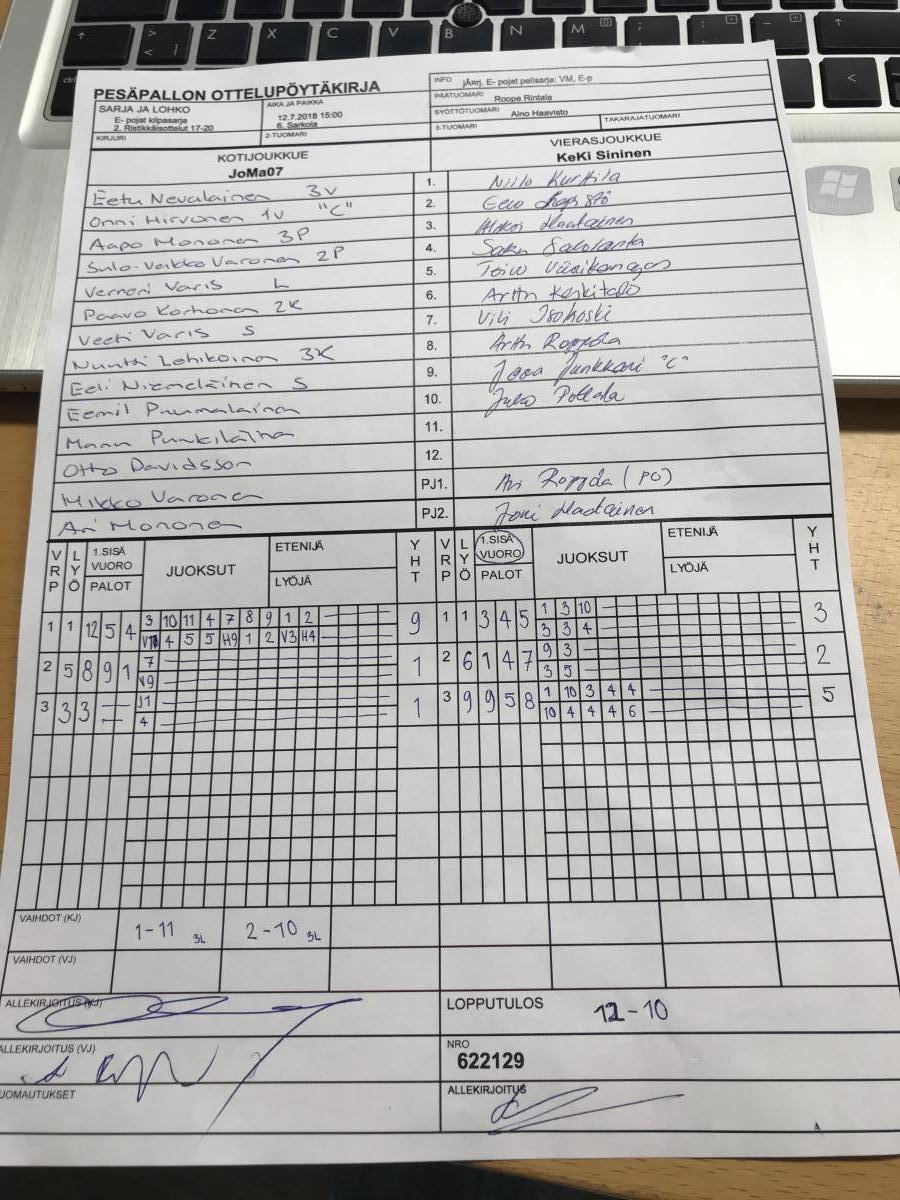 PESÄPALLON OTTELUPÖYTÄKIRJA
INFO jÄurj. E- pojat pelisarja: VM, E-p
PÄÄTUOMARI Roope Rintala
SARJA JA LOHKO
E- pojat kilpasarja
2. Ristikkäisottelut 17-20
AIKA JA PAIKKA
12.7.2018 15:00
6. Sarkola
SYÖTTÖTUOMARI Aino Haavisto
TAKARAJATUOMARI
KIRJURI
2-TUOMARI
3-TUOMARI
KOTIJOUKKUE
JoMa07
VIERASJOUKKUE
KeKi Sininen
Eetu Nevalainen 3V 1. Niilo Kurkila
Onni Hirvonen 1V "C" 2. Eero
Aapo Mononen 3P 3.
Sulo-Veikko Varonen 2P 4. Saku Salolanta
Verneri Varis L 5. Toivo Viisikangas
Paavo Korhonen 2K 6. Artturi Keskitalo
Veeti Varis S 7. Vili Isokoski
Nuutti Lehikoinen 3K 8. Roppola
Eeli Niemeläinen S 9. Junkkari "C"
Eemil Puumalainen 10. Juho Pollala
Manu Punkilaina 11.
Otto Davidsson 12.
Mikko Varonen PJ1. Ari Roppola (PO)
Ari Mononen PJ2. Joni
VRP LYÖ 1.SISÄ VUORO PALOT JUOKSUT ETENIJÄ LYÖJÄ YHT VRP LYÖ 1.SISÄ VUORO PALOT JUOKSUT ETENIJÄ LYÖJÄ YHT
1 1 12 5 4 3 10 11 4 7 8 9 1 2 9 1 1 3 4 5 1 3 10 3
4 5 5 H9 1 2 V3 H4 3 3 4
2 5 8 9 1 7 1 2 6 1 4 7 9 3 2
V9 3 5
3 3 3 — J1 1 3 9 9 5 8 1 10 3 4 4 5
4 10 4 4 4 6
VAIHDOT (KJ) 1-11 3L 2-10 3L
VAIHDOT (VJ)
ALLEKIRJOITUS (KJ)
LOPPUTULOS 11-10
ALLEKIRJOITUS (VJ)
NRO
622129
UOMAUTUKSET
ALLEKIRJOITUS